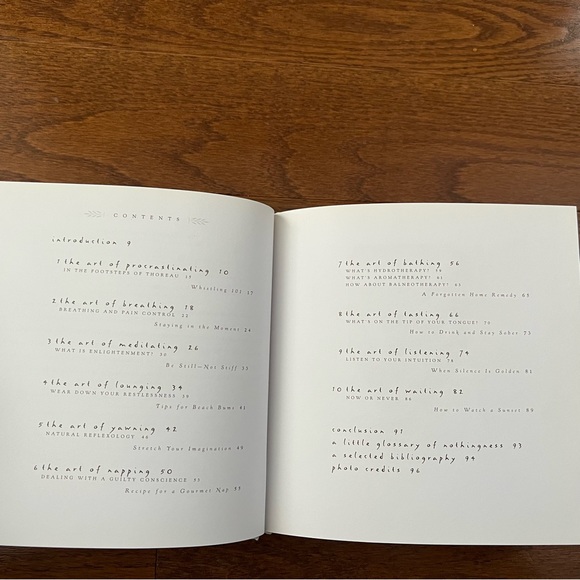 CONTENTS
introduction 9
1 the art of procrastinating 10
IN THE FOOTSTEPS OF THOREAU
Whistling 101 17
2 the art of breathing 18
BREATHING AND PAIN CONTROL 22
Staying in the Moment 24
3 the art of meditating 26
WHAT IS ENLIGHTENMENT? 30
Be Still—Not Stiff 33
4 the art of lounging 34
WEAR DOWN YOUR RESTLESSNESS
Tips for Beach Bums 41
5 the art of yawning 42
NATURAL REFLEXOLOGY
Stretch Your Imagination 49
6 the art of napping 50
DEALING WITH A GUILTY CONSCIENCE 53
Recipe for a Gourmet Nap 55
7 the art of bathing 56
WHAT'S HYDROTHERAPY?
WHAT'S AROMATHERAPY? 61
HOW ABOUT BALNEOTHERAPY?
A Forgotten Home Remedy 65
8 the art of tasting 66
WHAT'S ON THE TIP OF YOUR TONGUE? 70
How to Drink and Stay Sober 73
9 the art of listening 74
LISTEN TO YOUR INTUITION 78
When Silence Is Golden 81
10 the art of waiting 82
NOW OR NEVER
How to Watch a Sunset 89
conclusion 91
a little glossary of nothingness 93
a selected bibliography 94
photo credits 96